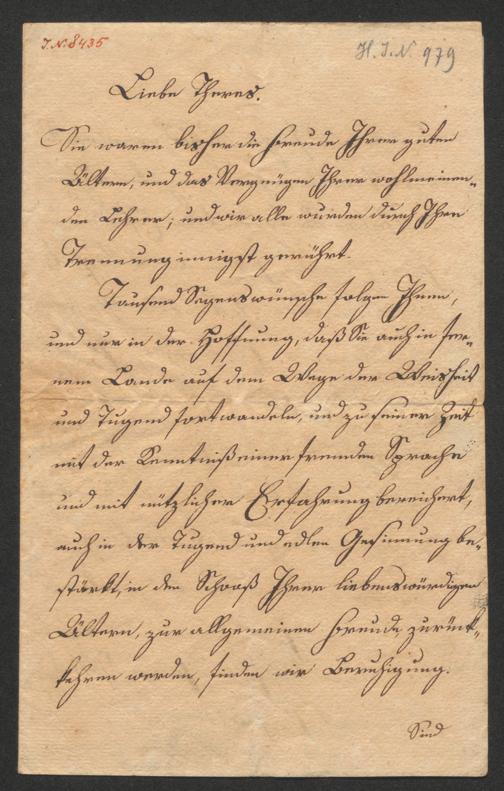 I.N. 8435
H.I.N. 979
Liebe Theres.
Sie waren bisher die Freude Ihrer guten
Ältern, und das Vergnügen Ihrer wohlmeinen-
den Lehrer; und wir alle wurden durch Ihre
Trennung innigst gerührt.
Tausend Segenswünsche folgen Ihnen,
und nur in der Hoffnung, daß Sie auch in fer-
nem Lande auf dem Wege der Weisheit
und Tugend fortwandeln, und zu seiner Zeit
mit der Kenntniß einer fremden Sprache
und mit nützlicher Erfahrung bereichert,
auch in der Tugend und edlen Gesinnung be-
stärkt, in den Schooß Ihrer liebenswürdigen
Ältern, zur allgemeinen Freude zurück-
kehren werden, finden wir Beruhigung.
Sind